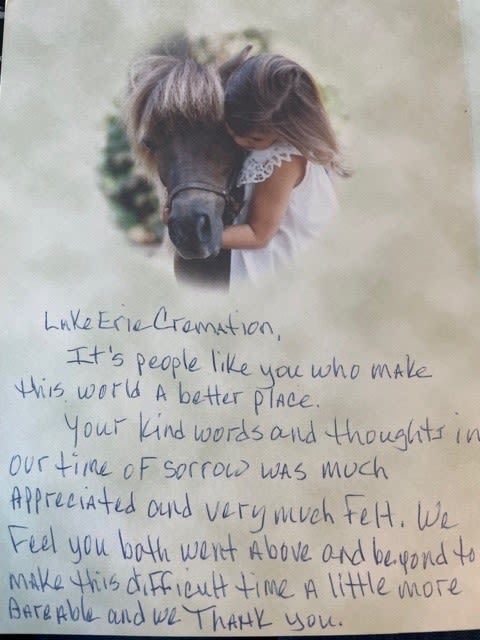 Lake Erie Cremation,
It's people like you who make
this world a better place.
Your kind words and thoughts in
our time of sorrow was much
Appreciated and very much felt. We
Feel you both went Above and beyond to
make this difficult time a little more
Bareable and we Thank you.